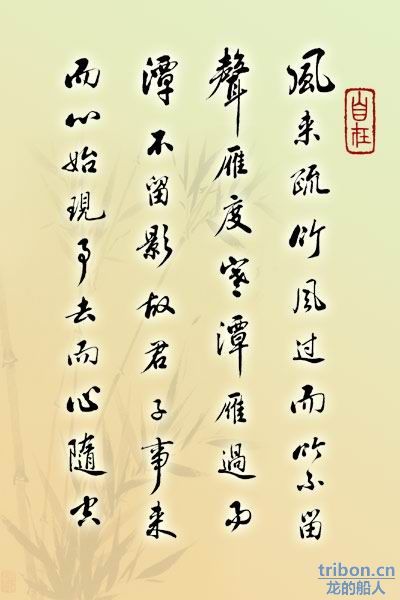 風来疏竹风过而竹不留
聲雁度寒潭雁過而
潭不留影故君子事来
而心始現事去而心隨空
自在
tribon.cn
龙的船人